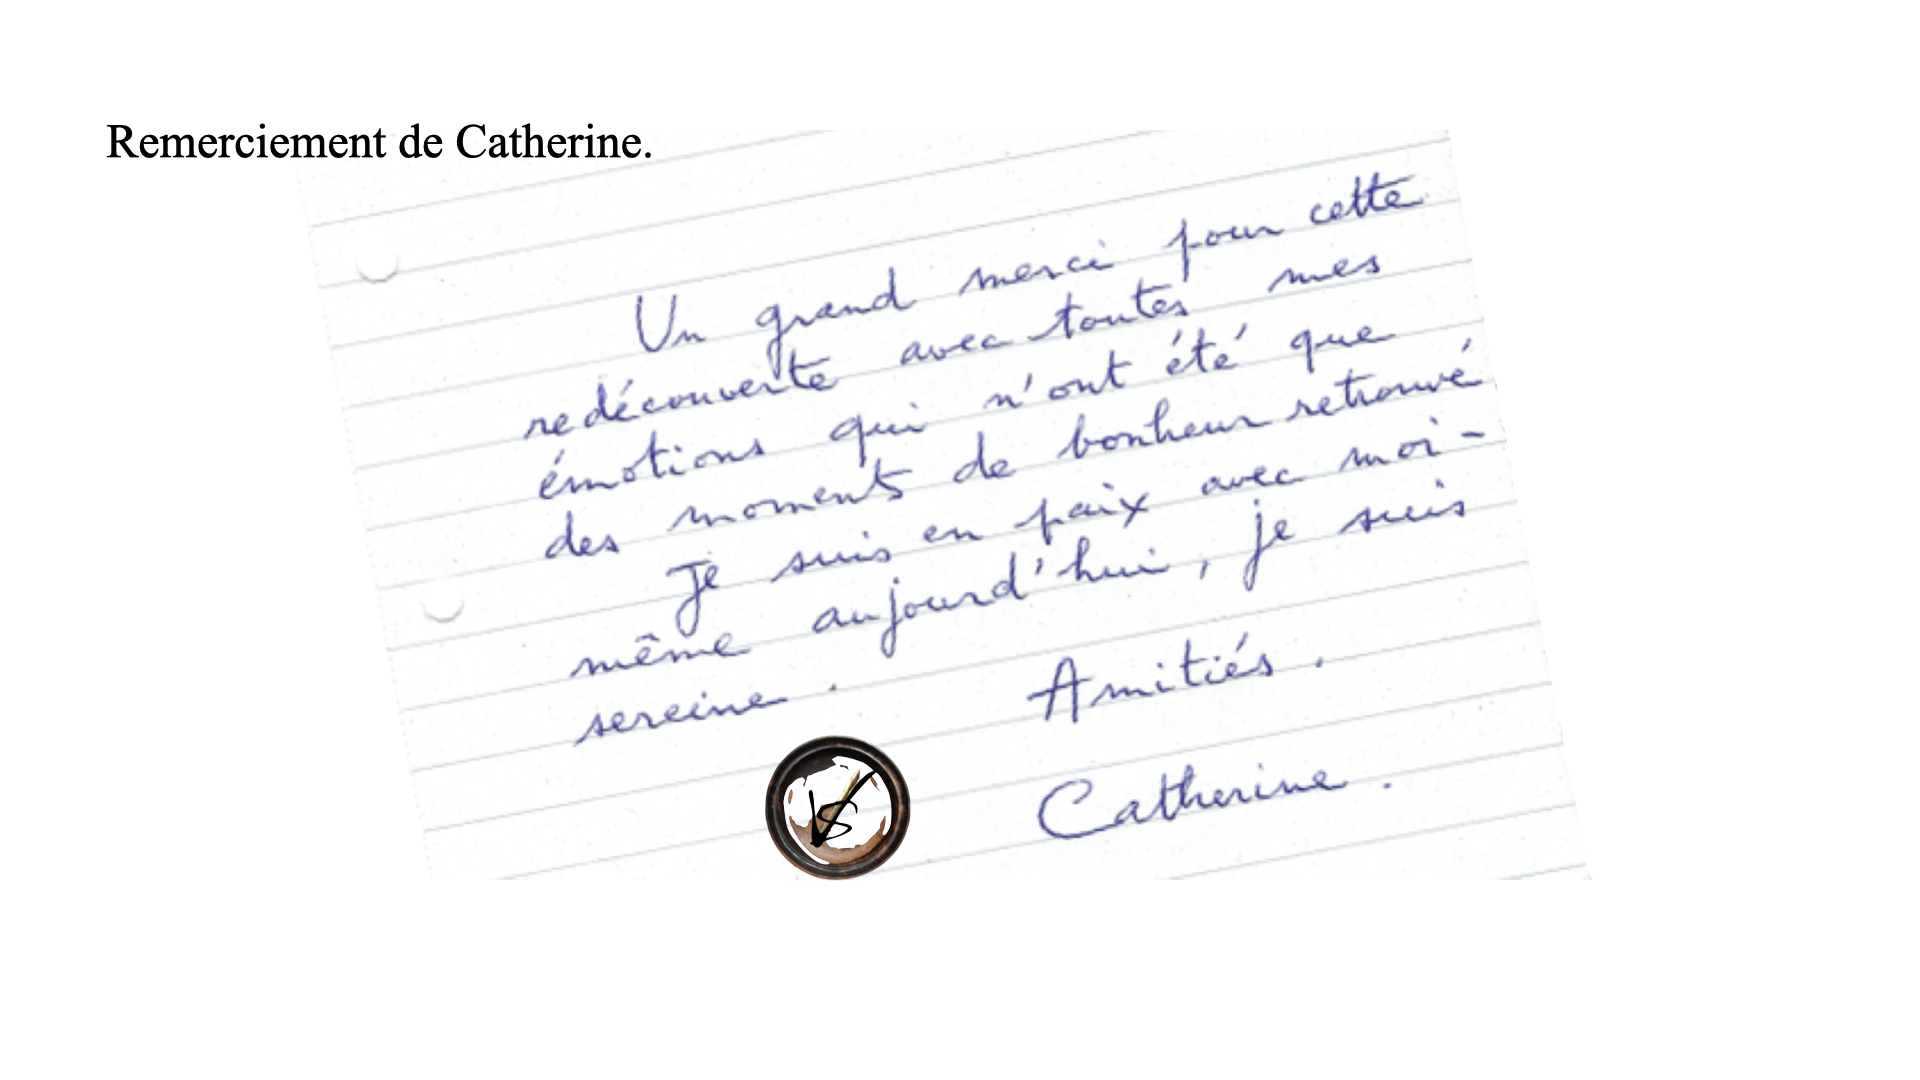 Remerciement de Catherine.
Un grand merci pour cette
redécouverte avec toutes mes
émotions qui n'ont été que
des moments de bonheur retrouvé
Je suis en paix avec moi-
même aujourd'hui, je suis
sereine.
Amitiés.
Catherine.